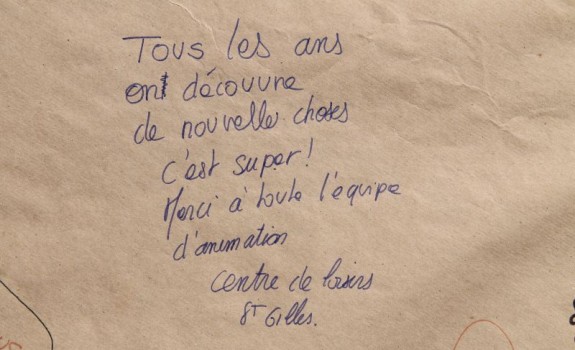 Tous les ans
ont découvre
de nouvelle choses
c'est super!
Merci à toute l'équipe
d'animation
centre de loisirs
ST Gilles.